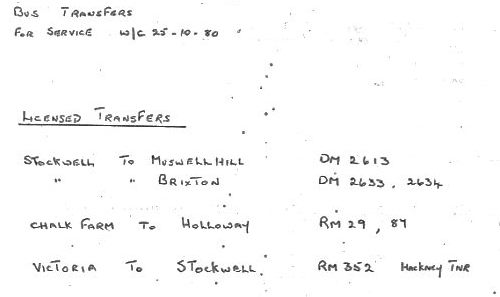 BUS TRANSFERS
FOR SERVICE W/C 25-10-80
LICENSED TRANSFERS
STOCKWELL TO MUSWELL HILL DM 2613
" " BRIXTON DM 2633, 2634
CHALK FARM TO HOLLOWAY RM 29, 87
VICTORIA TO STOCKWELL. RM 352 HACKNEY TNR